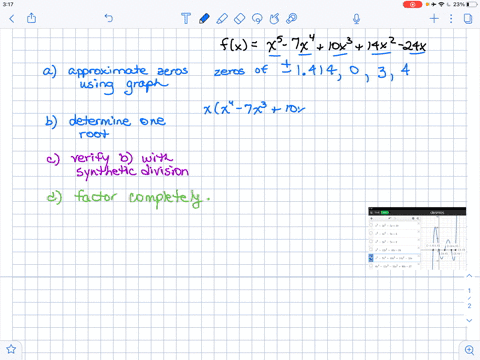 3:17
23%
f(x) = x⁵ - 7x⁴ + 10x³ + 14x² - 24x
a) approximate zeros using graph
zeros of ± 1.414, 0, 3, 4
x(x⁴ - 7x³ + 10x
b) determine one root
c) verify b) with synthetic division
d) factor completely.
1
/
2